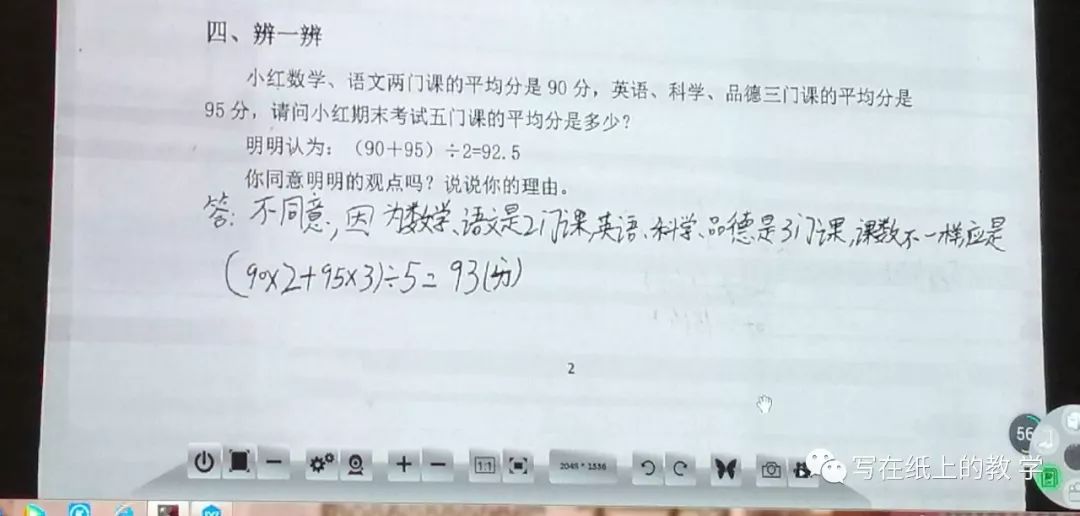 四、辨一辨
小红数学、语文两门课的平均分是 90 分，英语、科学、品德三门课的平均分是
95 分，请问小红期末考试五门课的平均分是多少？
明明认为：（90＋95）÷2=92.5
你同意明明的观点吗？说说你的理由。
答：不同意，因为数学、语文是2门课，英语、科学、品德是3门课，课数不一样，应是
(90×2+95×3)÷5=93(分)
2
56
1:1
2048 * 1536
写在纸上的教 学